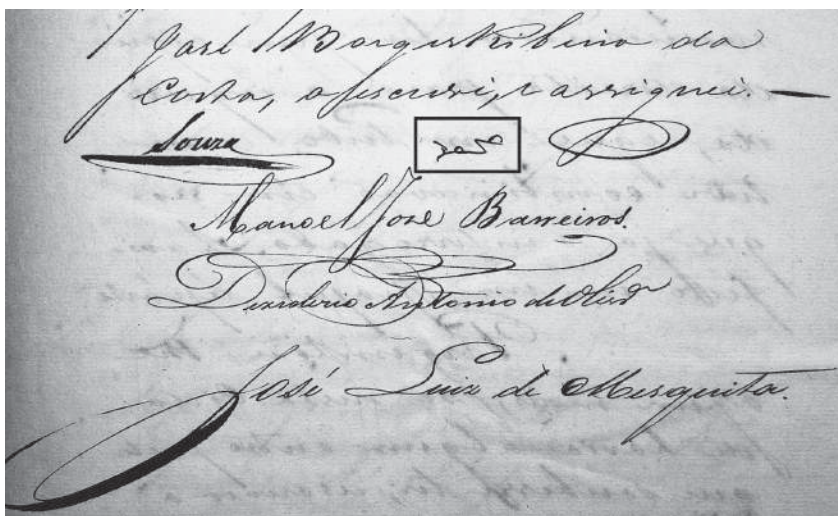 José Borges Ribeiro da
Costa, o escrevi, e assignei. —
Souza
Manoel José Barreiros.
Deziderio Antonio de
José Luiz de Mesquita.